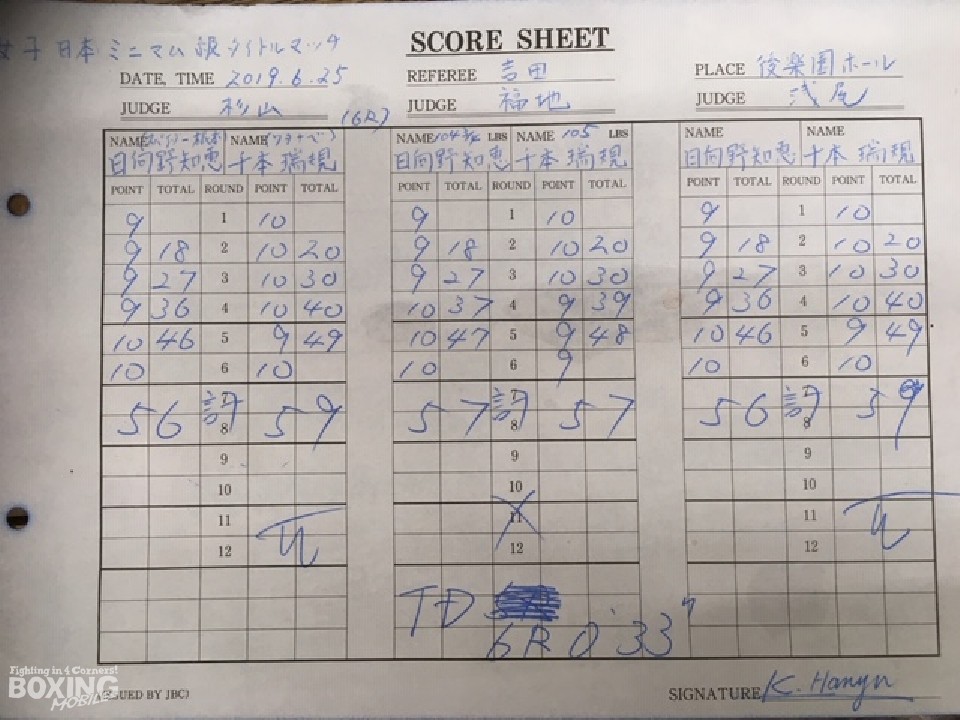 女子日本ミニマム級タイトルマッチ
SCORE SHEET
DATE, TIME 2019.6.25 REFEREE 吉田 PLACE 後楽園ホール
JUDGE 杉山 (6R) JUDGE 福地 JUDGE 浅尾
NAME NAME (ワタナベ) NAME 104 3/4 LBS NAME 105 LBS NAME NAME
日向野知恵 千本瑞規 日向野知恵 千本瑞規 日向野知恵 千本瑞規
POINT TOTAL ROUND POINT TOTAL POINT TOTAL ROUND POINT TOTAL POINT TOTAL ROUND POINT TOTAL
9 1 10 9 1 10 9 1 10
9 18 2 10 20 9 18 2 10 20 9 18 2 10 20
9 27 3 10 30 9 27 3 10 30 9 27 3 10 30
9 36 4 10 40 10 37 4 9 39 9 36 4 10 40
10 46 5 9 49 10 47 5 9 48 10 46 5 9 49
10 6 10 10 6 9 10 6 10
7 7 7
56 討 59 57 討 57 56 討 59
8 8 8
9 9 9
10 10 10
11 11 11
12 12 12
TD
6R 0'33"
Fighting in 4 Corners!
BOXING
MOBILE
(ISSUED BY JBC) SIGNATURE K. Hanyu